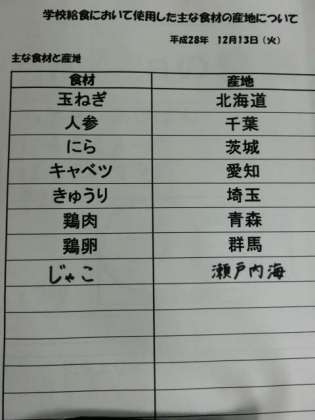 学校給食において使用した主な食材の産地について
平成28年 12月13日(火)
主な食材と産地
食材 産地
玉ねぎ 北海道
人参 千葉
にら 茨城
キャベツ 愛知
きゅうり 埼玉
鶏肉 青森
鶏卵 群馬
じゃこ 瀬戸内海